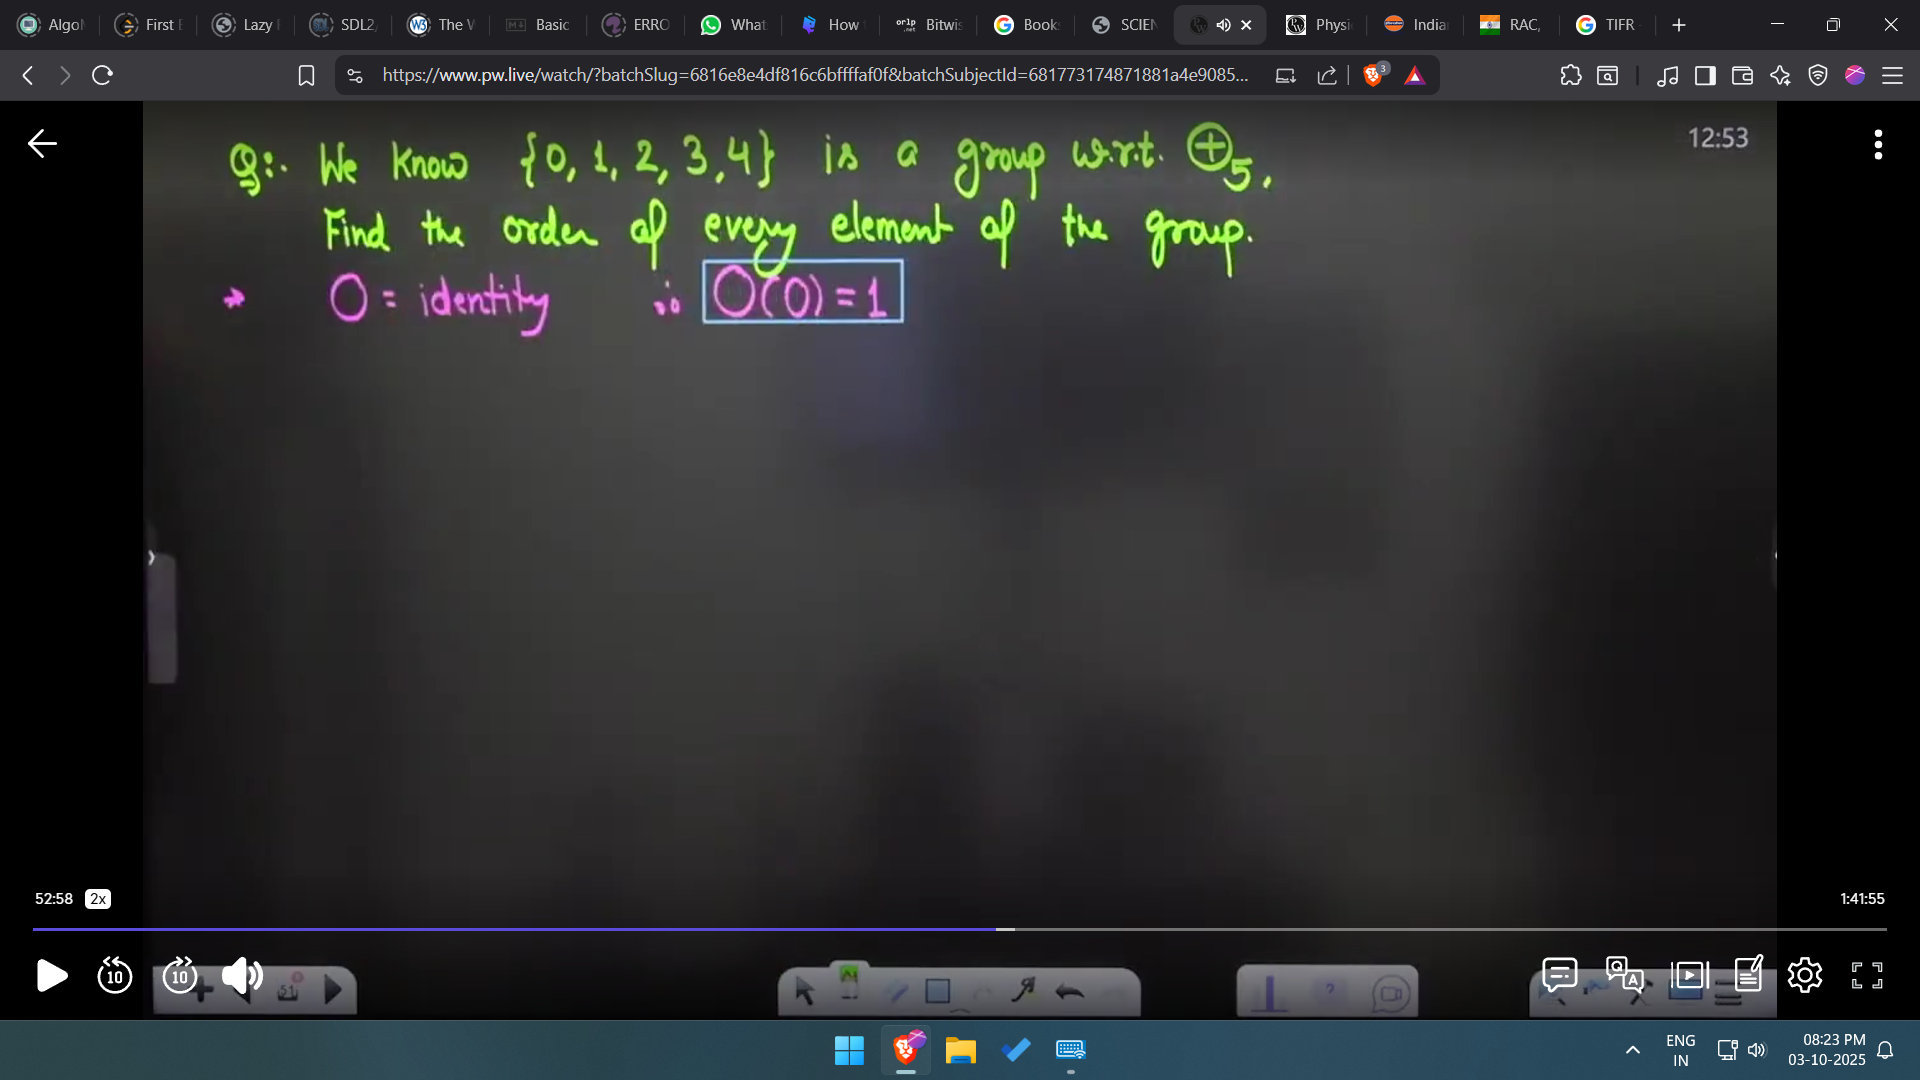 Algo First E Lazy SDL2, The W Basic ERRO What How Bitwis Book SCIEN Physi India RAC, TIFR
https://www.pw.live/watch/?batchSlug=6816e8e4df816c6bffffaf0f&batchSubjectId=681773174871881a4e9085... 3
12:53
Q:. We Know {0, 1, 2, 3, 4} is a group w.r.t. ⊕5.
Find the order of every element of the group.
→ 0 = identity ∴ O(0) = 1
52:58 2x 1:41:55
10 10 51 ?
ENG 08:23 PM
IN 03-10-2025